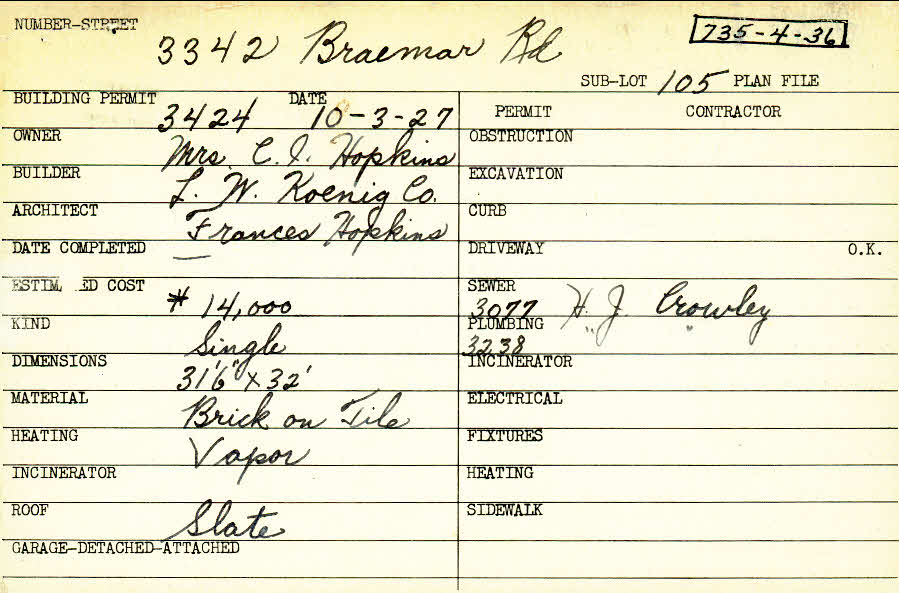 NUMBER-STREET
3342 Braemar Rd
735-4-36
SUB-LOT 105 PLAN FILE
BUILDING PERMIT 3424 DATE 10-3-27
OWNER Mrs. C. I. Hopkins
BUILDER L. W. Koenig Co.
ARCHITECT Frances Hopkins
DATE COMPLETED —
ESTIM ED COST # 14,000
KIND Single
DIMENSIONS 31'6" x 32'
MATERIAL Brick on Tile
HEATING Vapor
INCINERATOR
ROOF Slate
GARAGE-DETACHED-ATTACHED
PERMIT CONTRACTOR
OBSTRUCTION
EXCAVATION
CURB
DRIVEWAY O.K.
SEWER 3077 H. J. Crowley
PLUMBING 3238 " "
INCINERATOR
ELECTRICAL
FIXTURES
HEATING
SIDEWALK